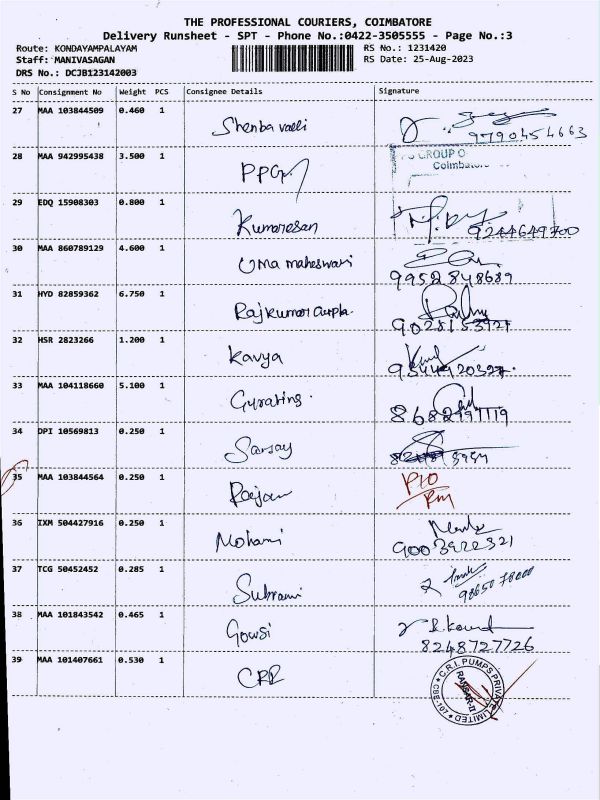 THE PROFESSIONAL COURIERS, COIMBATORE
Delivery Runsheet - SPT - Phone No.:0422-3505555 - Page No.:3
Route: KONDAYAMPALAYAM RS No.: 1231420
Staff: MANIVASAGAN RS Date: 25-Aug-2023
DRS No.: DCJB123142003
S No Consignment No Weight PCS Consignee Details Signature
27 MAA 103844509 0.460 1 Shenba valli 9790454663
28 MAA 942995438 3.500 1 PPG GROUP O
Coimbatore
29 EDQ 15908303 0.800 1 Kumaresan 9244649700
30 MAA 860789129 4.600 1 Uma maheswari 9952848689
31 HYD 82859362 6.750 1 Rajkumar Gupta
32 HSR 2823266 1.200 1 Kavya
33 MAA 104118660 5.100 1
34 DPI 10569813 0.250 1
35 MAA 103844564 0.250 1
36 IXM 504427916 0.250 1 Mohani 9003922321
37 TCG 50452452 0.285 1 Subrami 9865078000
38 MAA 101843542 0.465 1 Gowsi 8248727726
39 MAA 101407661 0.530 1 CRR C.R.I. PUMPS PRIVATE LIMITED
CBE-107